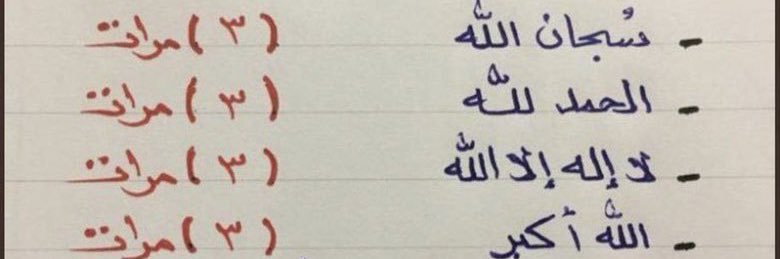 - سُبحان الله (٣) مرات
- الحمد لله (٣) مرات
- لا إله إلا الله (٣) مرات
- الله أكبر (٣) مرات